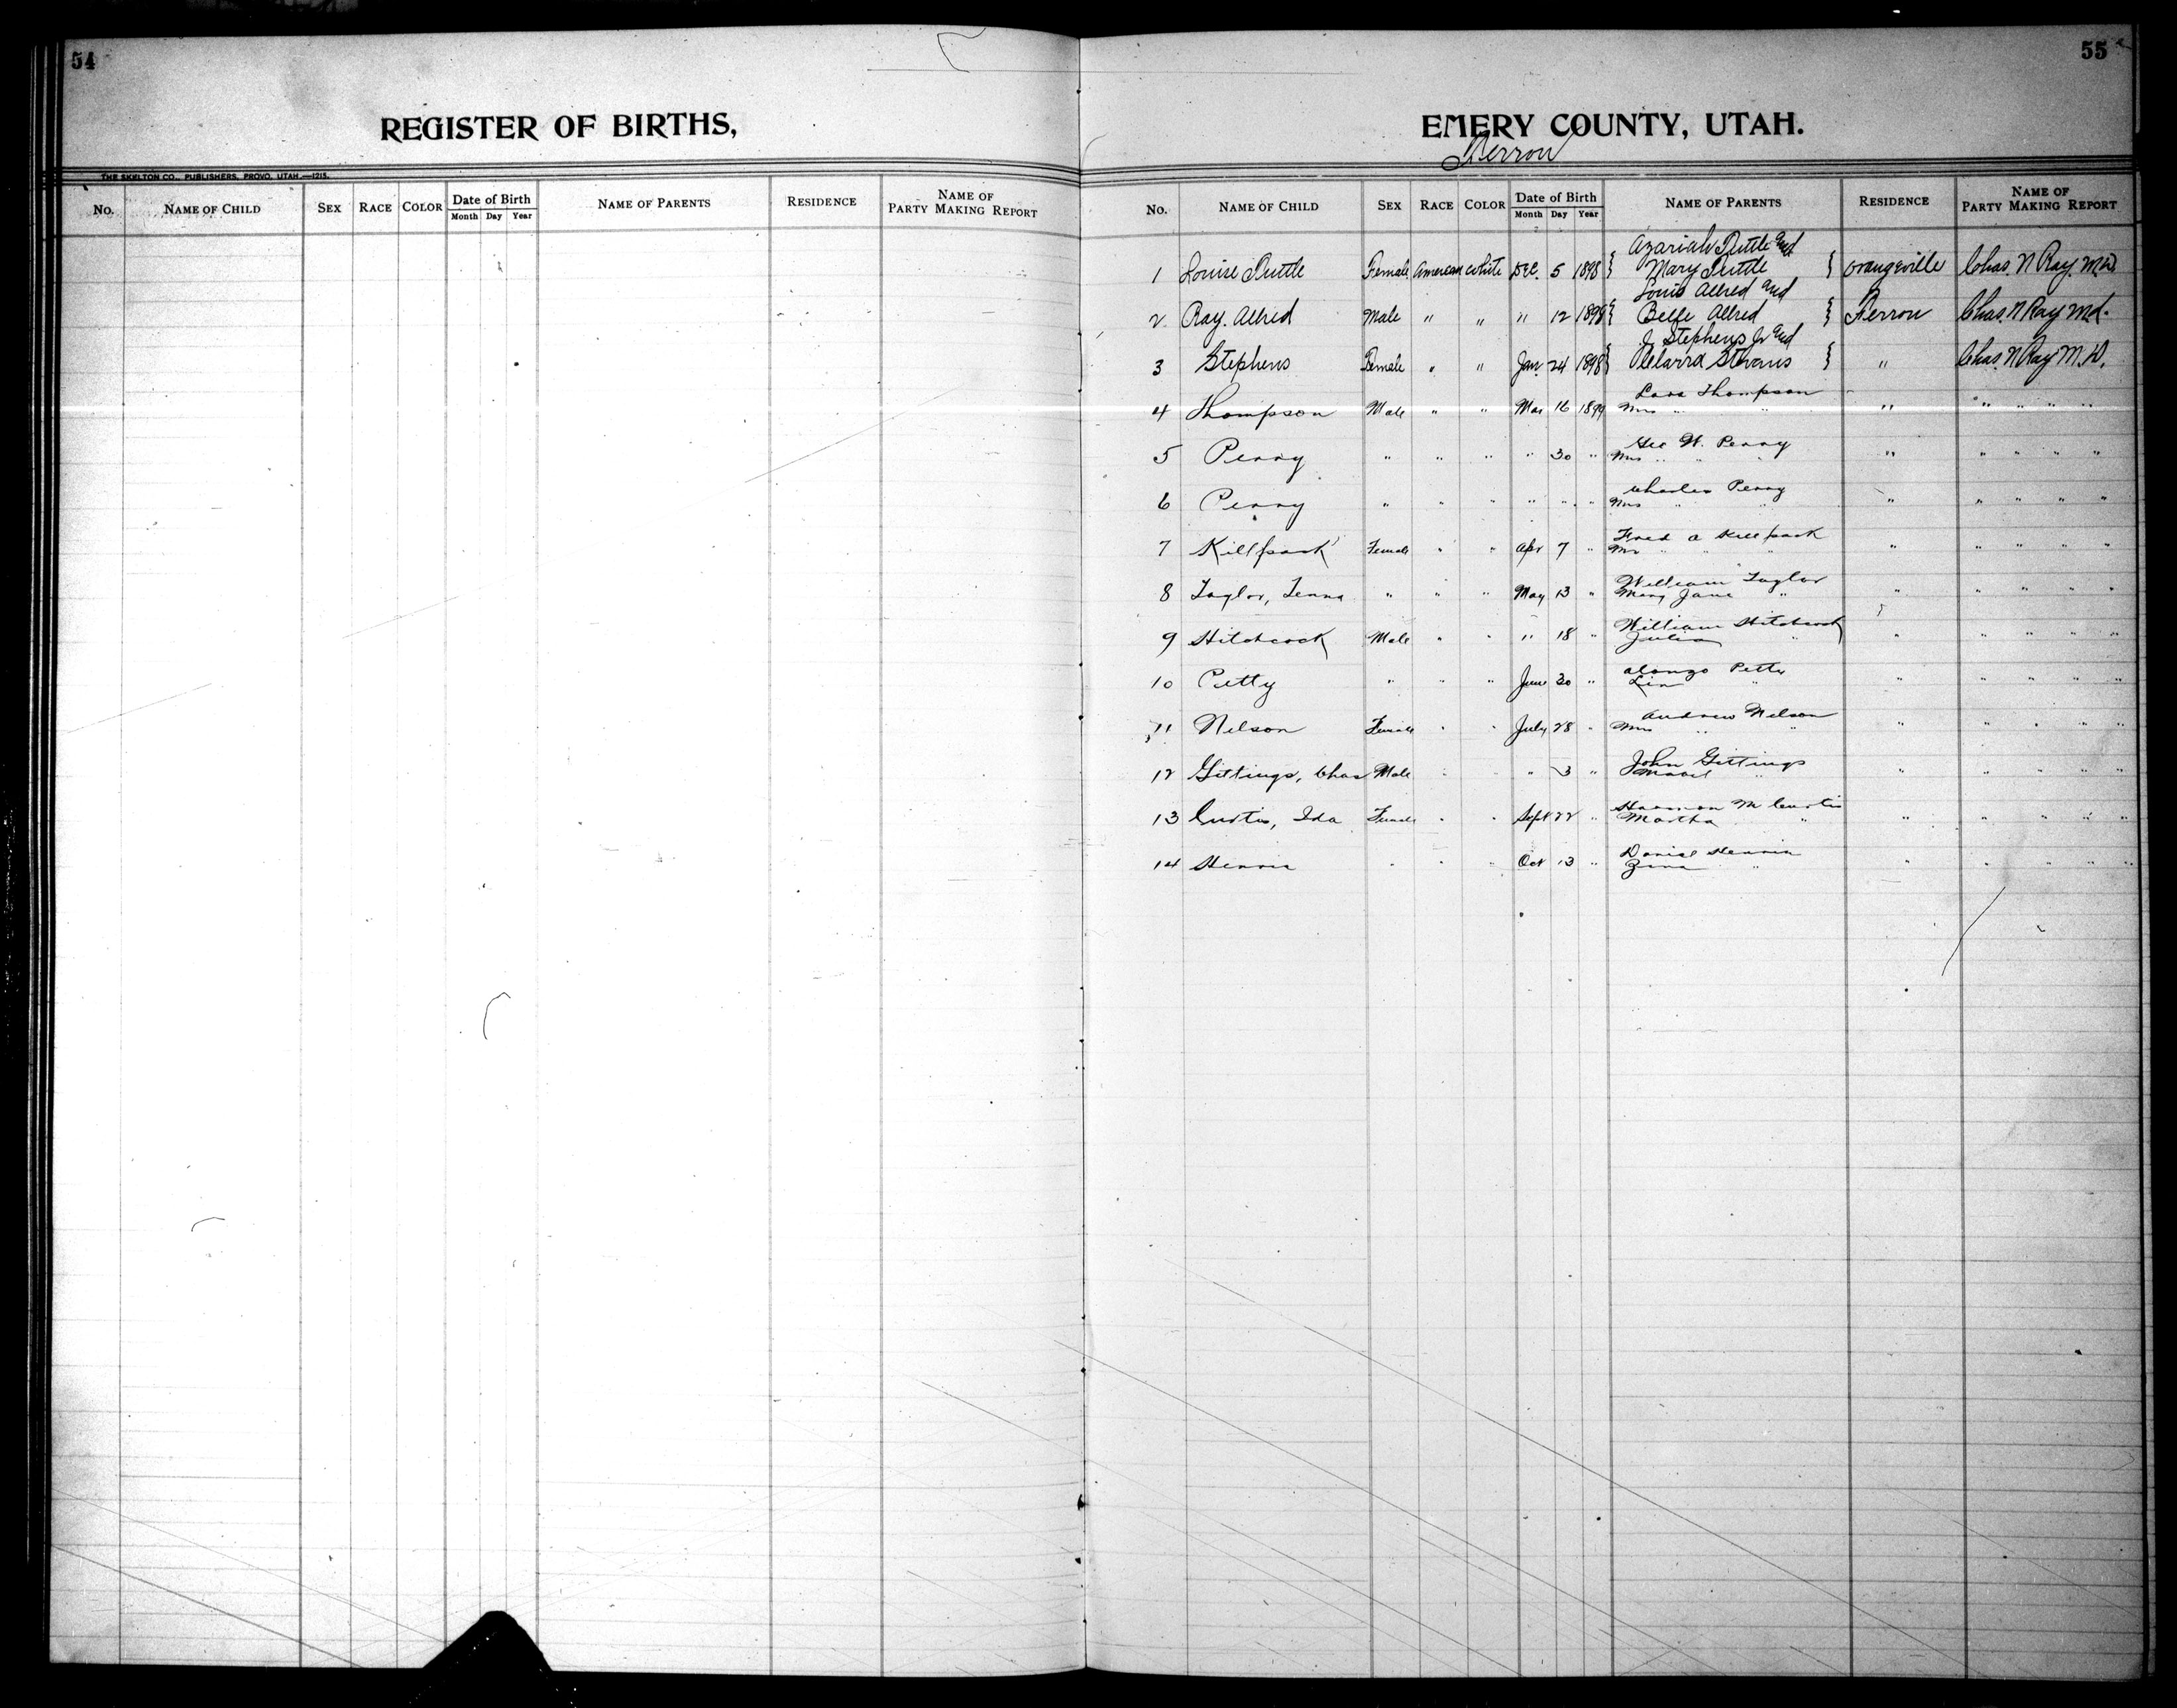 54
REGISTER OF BIRTHS,
THE SKELTON CO., PUBLISHERS, PROVO, UTAH.—1215.
No. NAME OF CHILD SEX RACE COLOR Date of Birth Month Day Year NAME OF PARENTS RESIDENCE NAME OF PARTY MAKING REPORT
55
EMERY COUNTY, UTAH.
Ferron
No. NAME OF CHILD SEX RACE COLOR Date of Birth Month Day Year NAME OF PARENTS RESIDENCE NAME OF PARTY MAKING REPORT
Azariah Tuttle and
1 Louise Tuttle Female American White Dec. 5 1898 { Mary Tuttle } Orangeville Chas. N Ray. M.D.
Louis Allred and
2 Ray. Allred Male " " " 12 1898 { Belle Allred } Ferron Chas. N Ray Md.
J. Stephens Jr and
3 Stephens Female " " Jan 24 1898 } Stevans } " Chas. N Ray M.D.
Thompson
4 Thompson Male " " Mar 16 1899 Mrs " " " " " " "
Geo W. Penny
5 Penny " " " " 30 " Mrs " " " " " " " "
Charles Penny
6 Penny " " " " " " Mrs " " " " " " "
Fred A Killpack
7 Killpack Female " " Apr 7 " Mrs " " " " " " " "
William Taylor
8 Taylor, Tenna " " " May 13 " Mary Jane " " " " " "
William Hitchcock
9 Hitchcock Male " " " 18 " Julia " " " " " "
Alonzo Petty
10 Petty " " " June 30 " " " " " " "
Andrew Nelson
11 Nelson Female " " July 28 " Mrs " " " " " " "
John Gittings
12 Gittings, Chas Male " " " 3 " " " " " " "
M Curtis
13 Curtis, Ida Female " " Sept 22 " Martha " " " " " "
Daniel
14 " " " Oct 13 " Zina " " " " " "